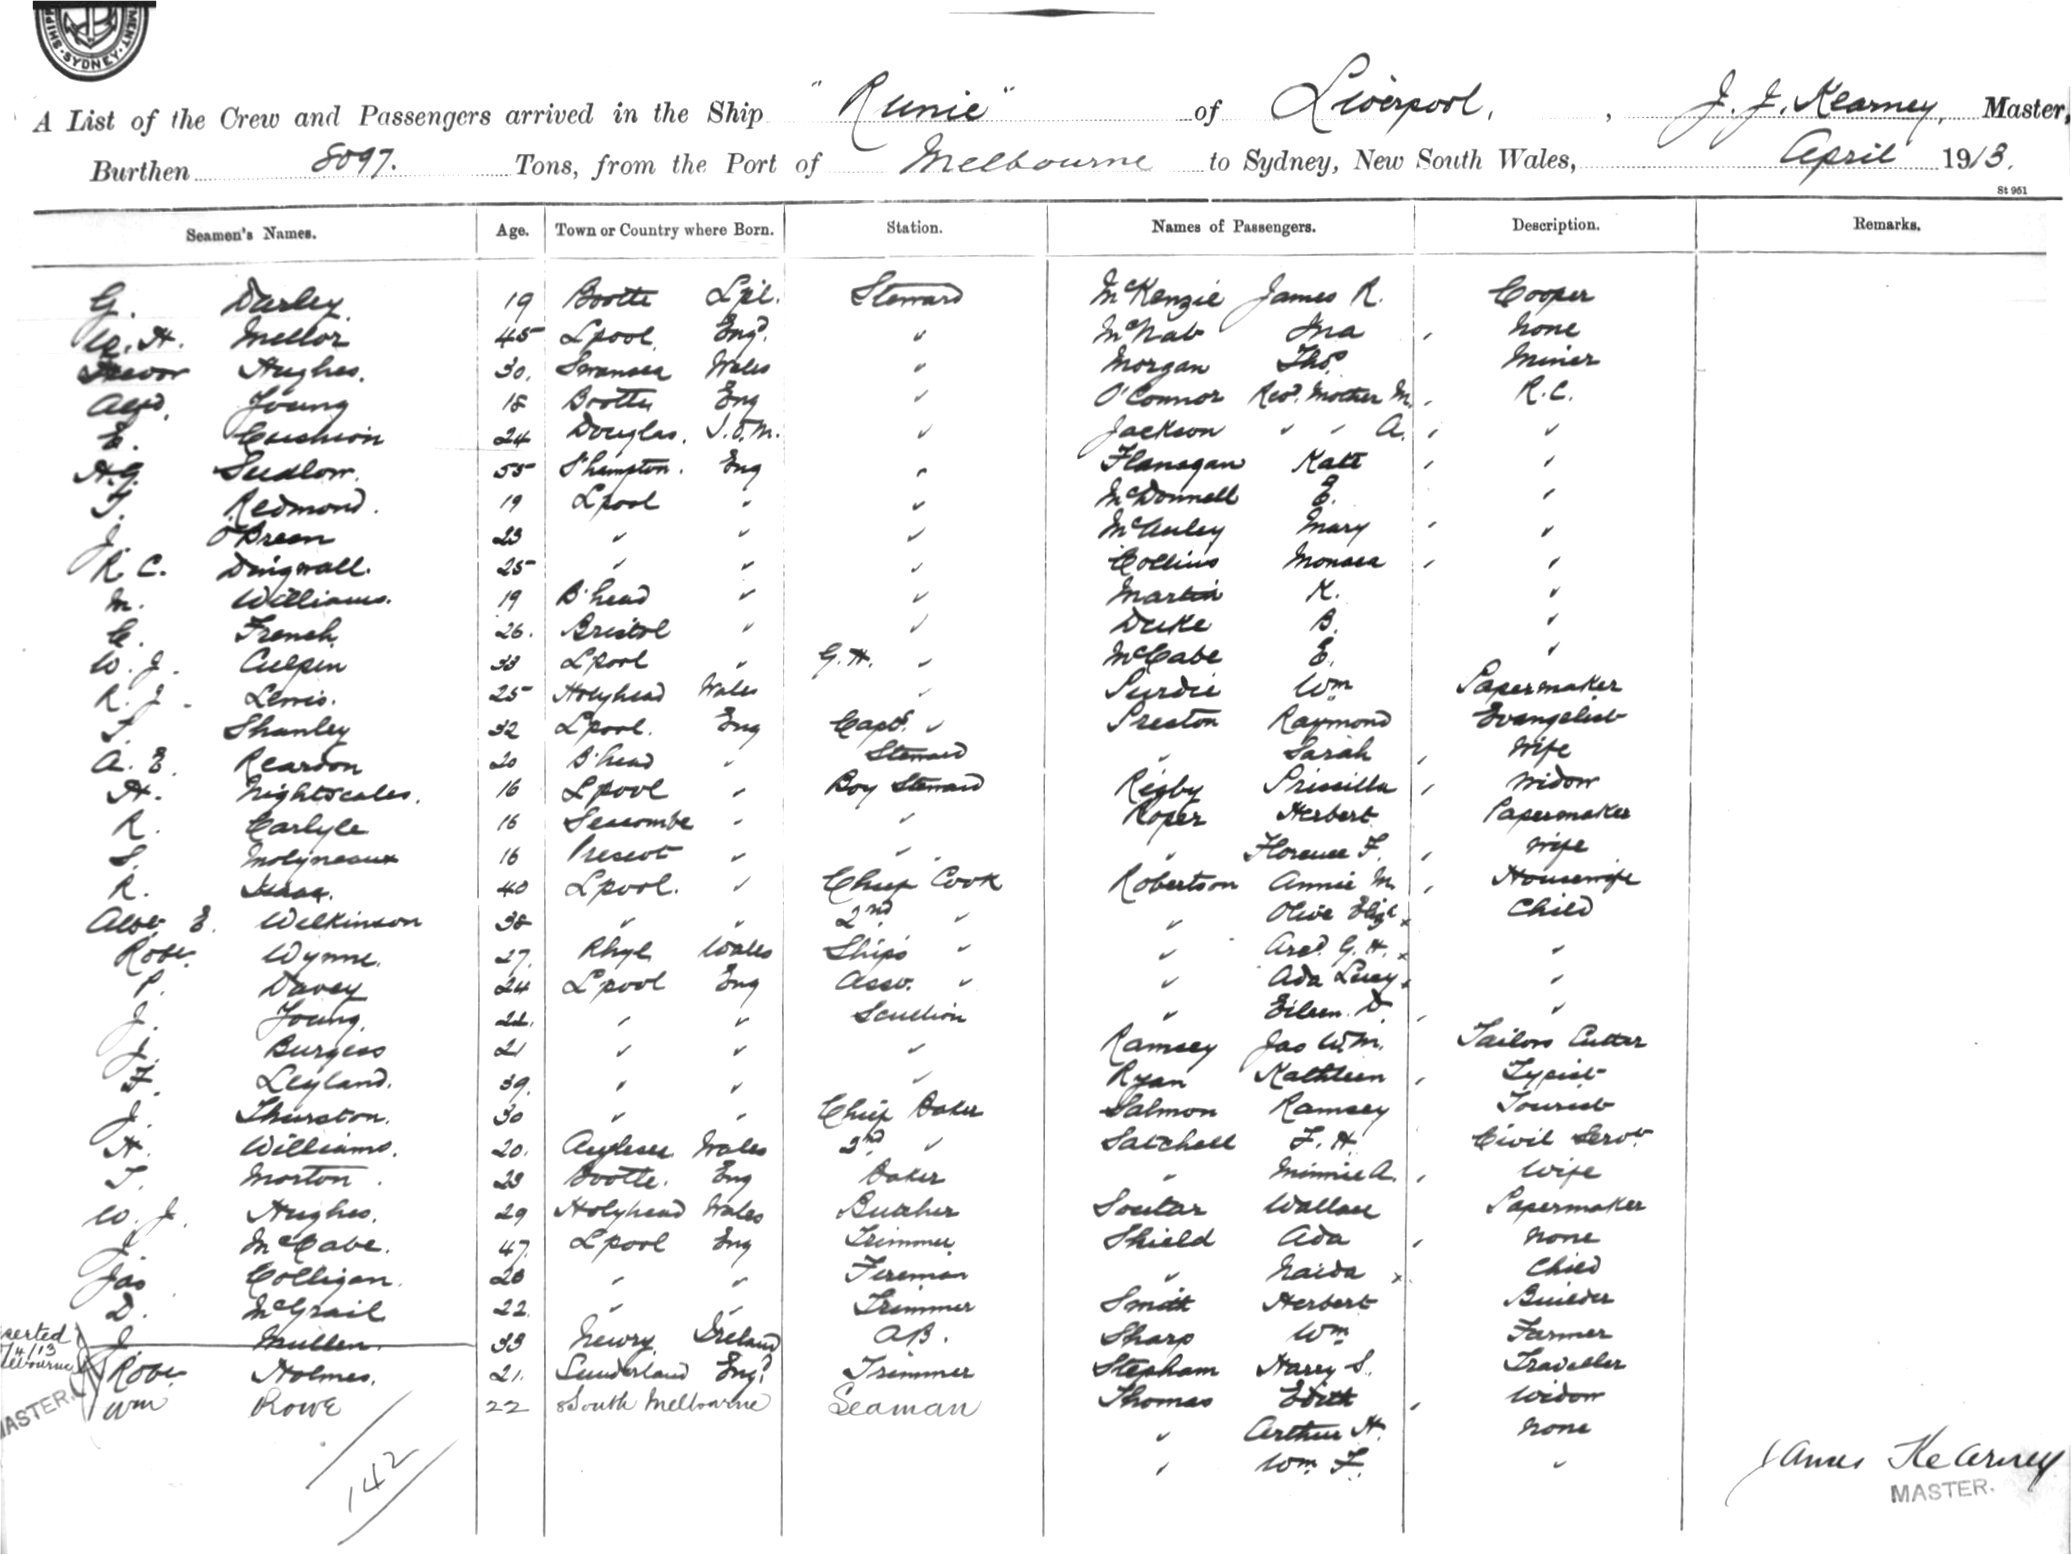 SHIP
SYDNEY
MENT
A List of the Crew and Passengers arrived in the Ship "Runic" of Liverpool, , J. J. Kearney, Master,
Burthen 8097. Tons, from the Port of Melbourne to Sydney, New South Wales, April 1913.
St 951
Seamen's Names. Age. Town or Country where Born. Station. Names of Passengers. Description. Remarks.
G. Darley. 19 Bootle Lpl. Steward McKenzie James R. Cooper
H. Mellor 45 Lpool. Engd. " McNab Ina , None
Trevor Hughes. 30. Swansea Wales " Morgan Thos. Miner
Alfd. Young 18 Bootle Eng " O'Connor Revd. Mother M. , R.C.
E. Cushion 24 Douglas. I.O.M. " Jackson " " A. , "
H.G. Sudlow. 55 S'hampton. Eng " Flanagan Kate , "
T. Redmond. 19 Lpool " " McDonnell E. "
J. O'Breen 23 " " " McAuley Mary , "
R. C. Dingwall. 25 " " " Collins Monica , "
M. Williams. 19 B'head " " Martin K. "
C. French 26. Bristol " " Duke B. "
W. J. Culpin 33 Lpool " G.H. " McCabe E. "
R. J. Lewis. 25 Holyhead Wales " Purdie Wm Papermaker
T. Shanley 32 Lpool. Eng Capt. " Preston Raymond Evangelist
A. E. Reardon 20 B'head " Steward " Sarah , Wife
H. Nightscales. 16 Lpool " Boy Steward Rigby Priscilla , Widow
R. Carlyle 16 Seacombe " " Roper Herbert Papermaker
S. Molyneaux 16 Prescot " " " Florence F. , Wife
R. Isaac. 40 Lpool. " Chief Cook Robertson Annie M. , Housewife
Albt. E. Wilkinson 38 " " 2nd " " Olive Eliz. x Child
Robt. Wynne. 27. Rhyl Wales Ships " " G. H. x "
P. Davey 24 Lpool Eng Asst. " " Ada Lucy x "
J. Young. " " Scullion " Eileen D. , "
J. Burgess 21 " " " Ramsey Jas Wm. Tailors Cutter
F. Leyland. 39. " " " Ryan Kathleen , Typist
J. Thurston. 30 " " Chief Baker Salmon Ramsey Tourist
H. Williams. 20. Anglesea Wales 3rd " Satchell F. H. Civil Servt.
T. Morton. 23 Bootle. Eng Baker " Minnie A. , Wife
W. J. Hughes. 29 Holyhead Wales Butcher Soutar Wallace Papermaker
J. McCabe. 47. Lpool Eng Trimmer Shield Ada , None
Jas Colligan. 28 " " Fireman " Naida x Child
D. McGrail 22 " " Trimmer Smith Herbert Builder
J. Mullen. 33 Newry Ireland A.B. Sharp Wm Farmer
serted
/4/13
elbourne
Robt. Holmes. 21. Sunderland Engd. Trimmer Stepham Harry S. Traveller
MASTER.
Wm Rowe 22 South Melbourne Seaman Thomas Edith , Widow
" Arthur H. None
" Wm. F. "
142
James Kearney
MASTER.